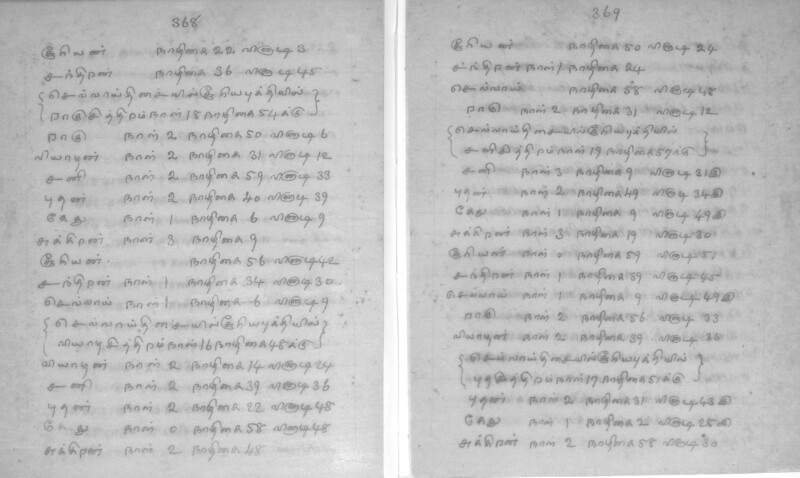 368
சூரியன் நாழிகை 22 விநாடி 3
சந்திரன் நாழிகை 36 விநாடி 45
செவ்வாய்திசையில்சூரியபுக்தியில்
ராகுசித்திரம் நாள் 18 நாழிகை 54க்கு
ராகு நாள் 2 நாழிகை 50 விநாடி 6
வியாழன் நாள் 2 நாழிகை 31 விநாடி 12
சனி நாள் 2 நாழிகை 59 விநாடி 33
புதன் நாள் 2 நாழிகை 40 விநாடி 39
கேது நாள் 1 நாழிகை 6 விநாடி 9
சுக்கிரன் நாள் 3 நாழிகை 9
சூரியன் நாழிகை 56 விநாடி 42
சந்திரன் நாள் 1 நாழிகை 34 விநாடி 30
செவ்வாய் நாள் 1 நாழிகை 6 விநாடி 9
செவ்வாய்திசையில்சூரியபுக்தியில்
வியாழசித்திரம் நாள் 16 நாழிகை 48க்கு
வியாழன் நாள் 2 நாழிகை 14 விநாடி 24
சனி நாள் 2 நாழிகை 39 விநாடி 36
புதன் நாள் 2 நாழிகை 22 விநாடி 48
கேது நாள் 0 நாழிகை 58 விநாடி 48
சுக்கிரன் நாள் 2 நாழிகை 48
369
சூரியன் நாழிகை 50 விநாடி 24
சந்திரன் நாள் 1 நாழிகை 24
செவ்வாய் நாழிகை 58 விநாடி 48
ராகு நாள் 2 நாழிகை 31 விநாடி 12
செவ்வாய்திசையில்சூரியபுக்தியில்
சனிசித்திரம் நாள் 19 நாழிகை 57க்கு
சனி நாள் 3 நாழிகை 9 விநாடி 31
புதன் நாள் 2 நாழிகை 49 விநாடி 34
கேது நாள் 1 நாழிகை 9 விநாடி 49
சுக்கிரன் நாள் 3 நாழிகை 19 விநாடி 30
சூரியன் நாள் 0 நாழிகை 59 விநாடி 51
சந்திரன் நாள் 1 நாழிகை 39 விநாடி 45
செவ்வாய் நாள் 1 நாழிகை 9 விநாடி 49
ராகு நாள் 2 நாழிகை 56 விநாடி 33
வியாழன் நாள் 2 நாழிகை 39 விநாடி 36
செவ்வாய்திசையில்சூரியபுக்தியில்
புதசித்திரம் நாள் 17 நாழிகை 51க்கு
புதன் நாள் 2 நாழிகை 31 விநாடி 43
கேது நாள் 1 நாழிகை 2 விநாடி 28
சுக்கிரன் நாள் 2 நாழிகை 58 விநாடி 30